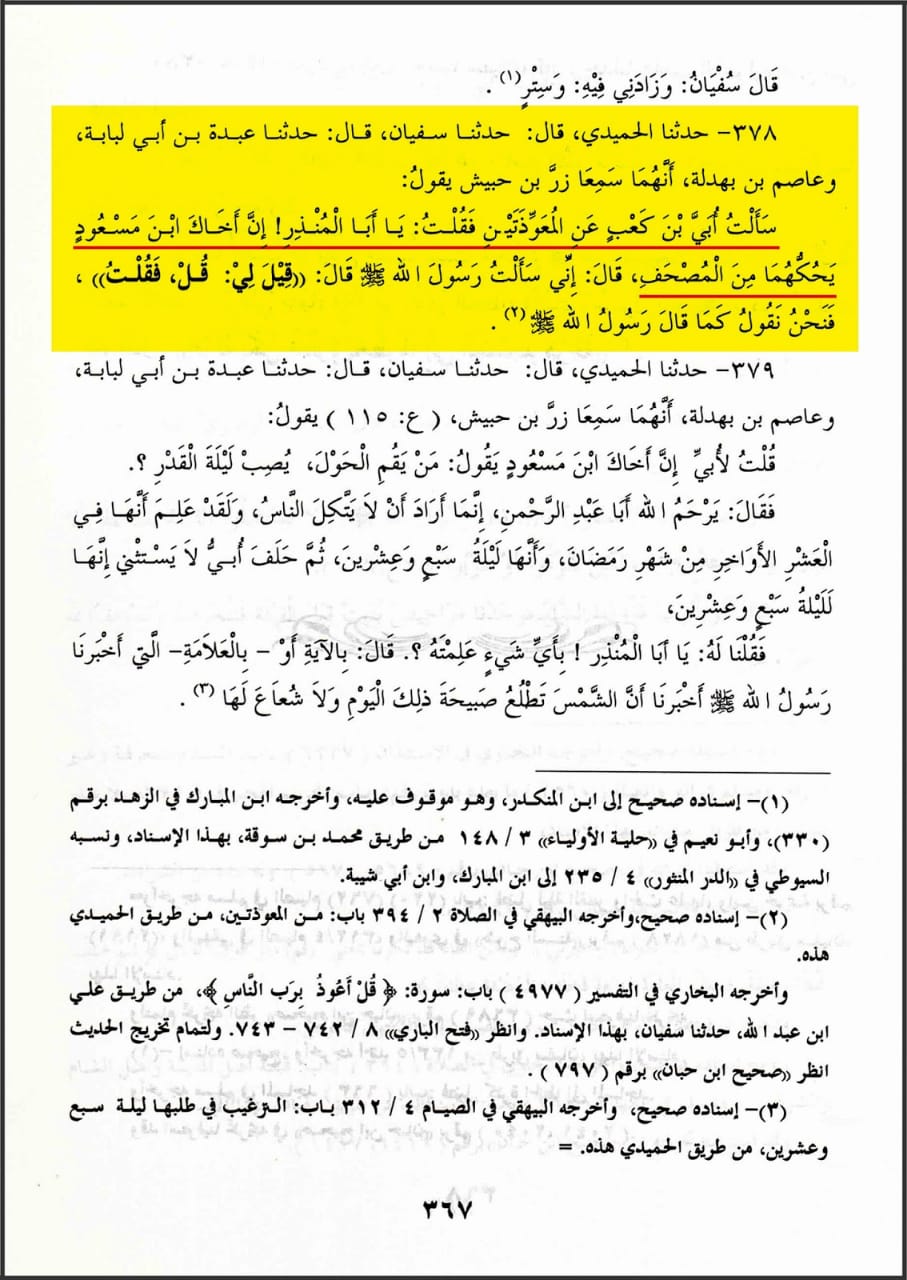 قَالَ سُفْيَانُ: وَزَادَنِي فِيْهِ: وَسِتْرٍ(١) .
٣٧٨- حدثنا الحميدي، قال: حدثنا سفيان، قال: حدثنا عبدة بن أبي لبابة،
وعاصم بن بهدلة، أَنَّهُمَا سَمِعَا زرَّ بن حبيش يقولُ:
سَأَلْتُ أُبَيَّ بْنَ كَعْبٍ عَنِ المُعَوِّذَتَيْنِ فَقُلْتُ: يَا أَبَا الْمُنْذِرِ! إِنَّ أَخَاكَ ابْنَ مَسْعُودٍ
يَحُكُّهُمَا مِنَ الْمُصْحَفِ، قَالَ: إِنِّي سَأَلْتُ رَسُولَ اللهِ ﷺ قَالَ: ((قِيْلَ لِيْ: قُلْ، فَقُلْتُ)) ،
فَنَحْنُ نَقُولُ كَمَا قَالَ رَسُولُ اللهِ ﷺ(٢) .
٣٧٩- حدثنا الحميدي، قال: حدثنا سفيان، قال: حدثنا عبدة بن أبي لبابة،
وعاصم بن بهدلة، أَنَّهُمَا سَمِعَا زرَّ بن حبيش، ( ع: ١١٥ ) يقولُ:
قُلْتُ لأُبيٍّ إِنَّ أَخَاكَ ابْنَ مَسْعُودٍ يَقُولُ: مَنْ يَقُمِ الْحَوْلَ، يُصِبْ لَيْلَةَ الْقَدْرِ ؟.
فَقَالَ: يَرْحَمُ اللهُ أَبَا عَبْدِ الرَّحْمنِ، إِنَّمَا أَرَادَ أَنْ لاَ يَتَّكِلَ النَّاسُ، وَلَقَدْ عَلِمَ أَنَّهَا فِي
الْعَشْرِ الأَوَاخِرِ مِنْ شَهْرِ رَمَضَانَ، وَأَنَّهَا لَيْلَةُ سَبْعٍ وَعِشْرِينَ، ثُمَّ حَلَفَ أُبيٌّ لاَ يَسْتَثْنِي إِنَّهَا
لَلَيْلَةُ سَبْعٍ وَعِشْرِينَ،
فَقُلْنَا لَهُ: يَا أَبَا الْمُنْذِرِ ! بِأَيِّ شَيْءٍ عَلِمْتَهُ ؟. قَالَ: بِالآيَةِ أَوْ - بِالْعَلاَمَةِ- الَّتِي أَخْبَرَنَا
رَسُولُ اللهِ ﷺ أَخْبَرَنَا أَنَّ الشَّمْسَ تَطْلُعُ صَبِيحَةَ ذلِكَ الْيَوْمِ وَلاَ شُعَاعَ لَهَا (٣) .
(١)- إسناده صحيح إلى ابن المنكدر، وهو موقوف عليه، وأخرجه ابن المبارك في الزهد برقم
(٣٣٠)، وأبو نعيم في ((حلية الأولياء)) ٣ / ١٤٨ من طريق محمد بن سوقة، بهذا الإسناد، ونسبه
السيوطي في ((الدر المنثور)) ٤ / ٢٣٥ إلى ابن المبارك، وابن أبي شيبة.
(٢)- إسناده صحيح،وأخرجه البيهقي في الصلاة ٢ / ٣٩٤ باب: من المعوذتين، من طريق الحميدي
هذه.
وأخرجه البخاري في التفسير ( ٤٩٧٧ ) باب: سورة: ﴿ قُلْ أَعُوذُ بِرَبِ النَّاسِ ﴾، من طريق علي
ابن عبد الله، حدثنا سفيان، بهذا الإسناد. وانظر ((فتح الباري)) ٨ / ٧٤٢ - ٧٤٣. ولتمام تخريج الحديث
انظر ((صحيح ابن حبان)) برقم ( ٧٩٧ ) .
(٣)- إسناده صحيح، وأخرجه البيهقي في الصيام ٤ / ٣١٢ باب: الترغيب في طلبها ليلة سبع
وعشرين، من طريق الحميدي هذه. =
٣٦٧